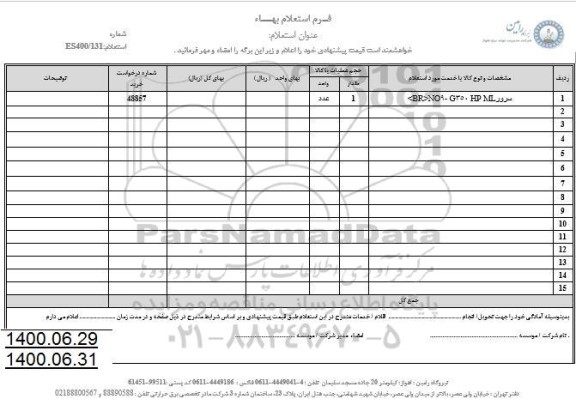 فرم استعلام بهاء
عنوان استعلام:
شماره
استعلام:ES400/131
خواهشمند است قیمت پیشنهادی خود را اعلام و زیر این برگه را امضاء و مهر فرمائید.
ردیف مشخصات و نوع کالا یا خدمت مورد استعلام حجم عملیات یا کالا مقدار واحد بهای واحد (ریال) بهای کل (ریال) شماره درخواست خرید توضیحات
1 سرور HP ML ۳۵۰ G ۹۰-NO<BR> 1 عدد 48857
2
3
4
5
6
7
8
9
10
11
12
13
14
15
جمع کل
ParsNamadData
مرکز فرآوری اطلاعات پارس نماد داده ها
پایگاه اطلاع رسانی مناقصه و مزایده
۰۲۱-۸۸۳۴۹۶۷۰-۵
بدینوسیله آمادگی خود را جهت تحویل/ انجام اقلام / خدمات مندرج در این استعلام طبق قیمت پیشنهادی و بر اساس شرایط مندرج در ذیل صفحه و در مدت زمان اعلام می دارم
نام شرکت / موسسه : امضاء مدیر شرکت / موسسه
1400.06.29
1400.06.31
نیروگاه رامین : اهواز/ کیلومتر 20 جاده مسجد سلیمان تلفن : 4-4449041-0611 فاکس : 4449186-0611 کد پستی :99511-61451
دفتر تهران : خیابان ولی عصر، بالاتر از میدان ولی عصر، خیابان شهید شهامتی، جنب هتل ایران، پلاک 23، ساختمان شماره 3 شرکت مادر تخصصی برق حرارتی تلفن : 88890588 و 02188800567